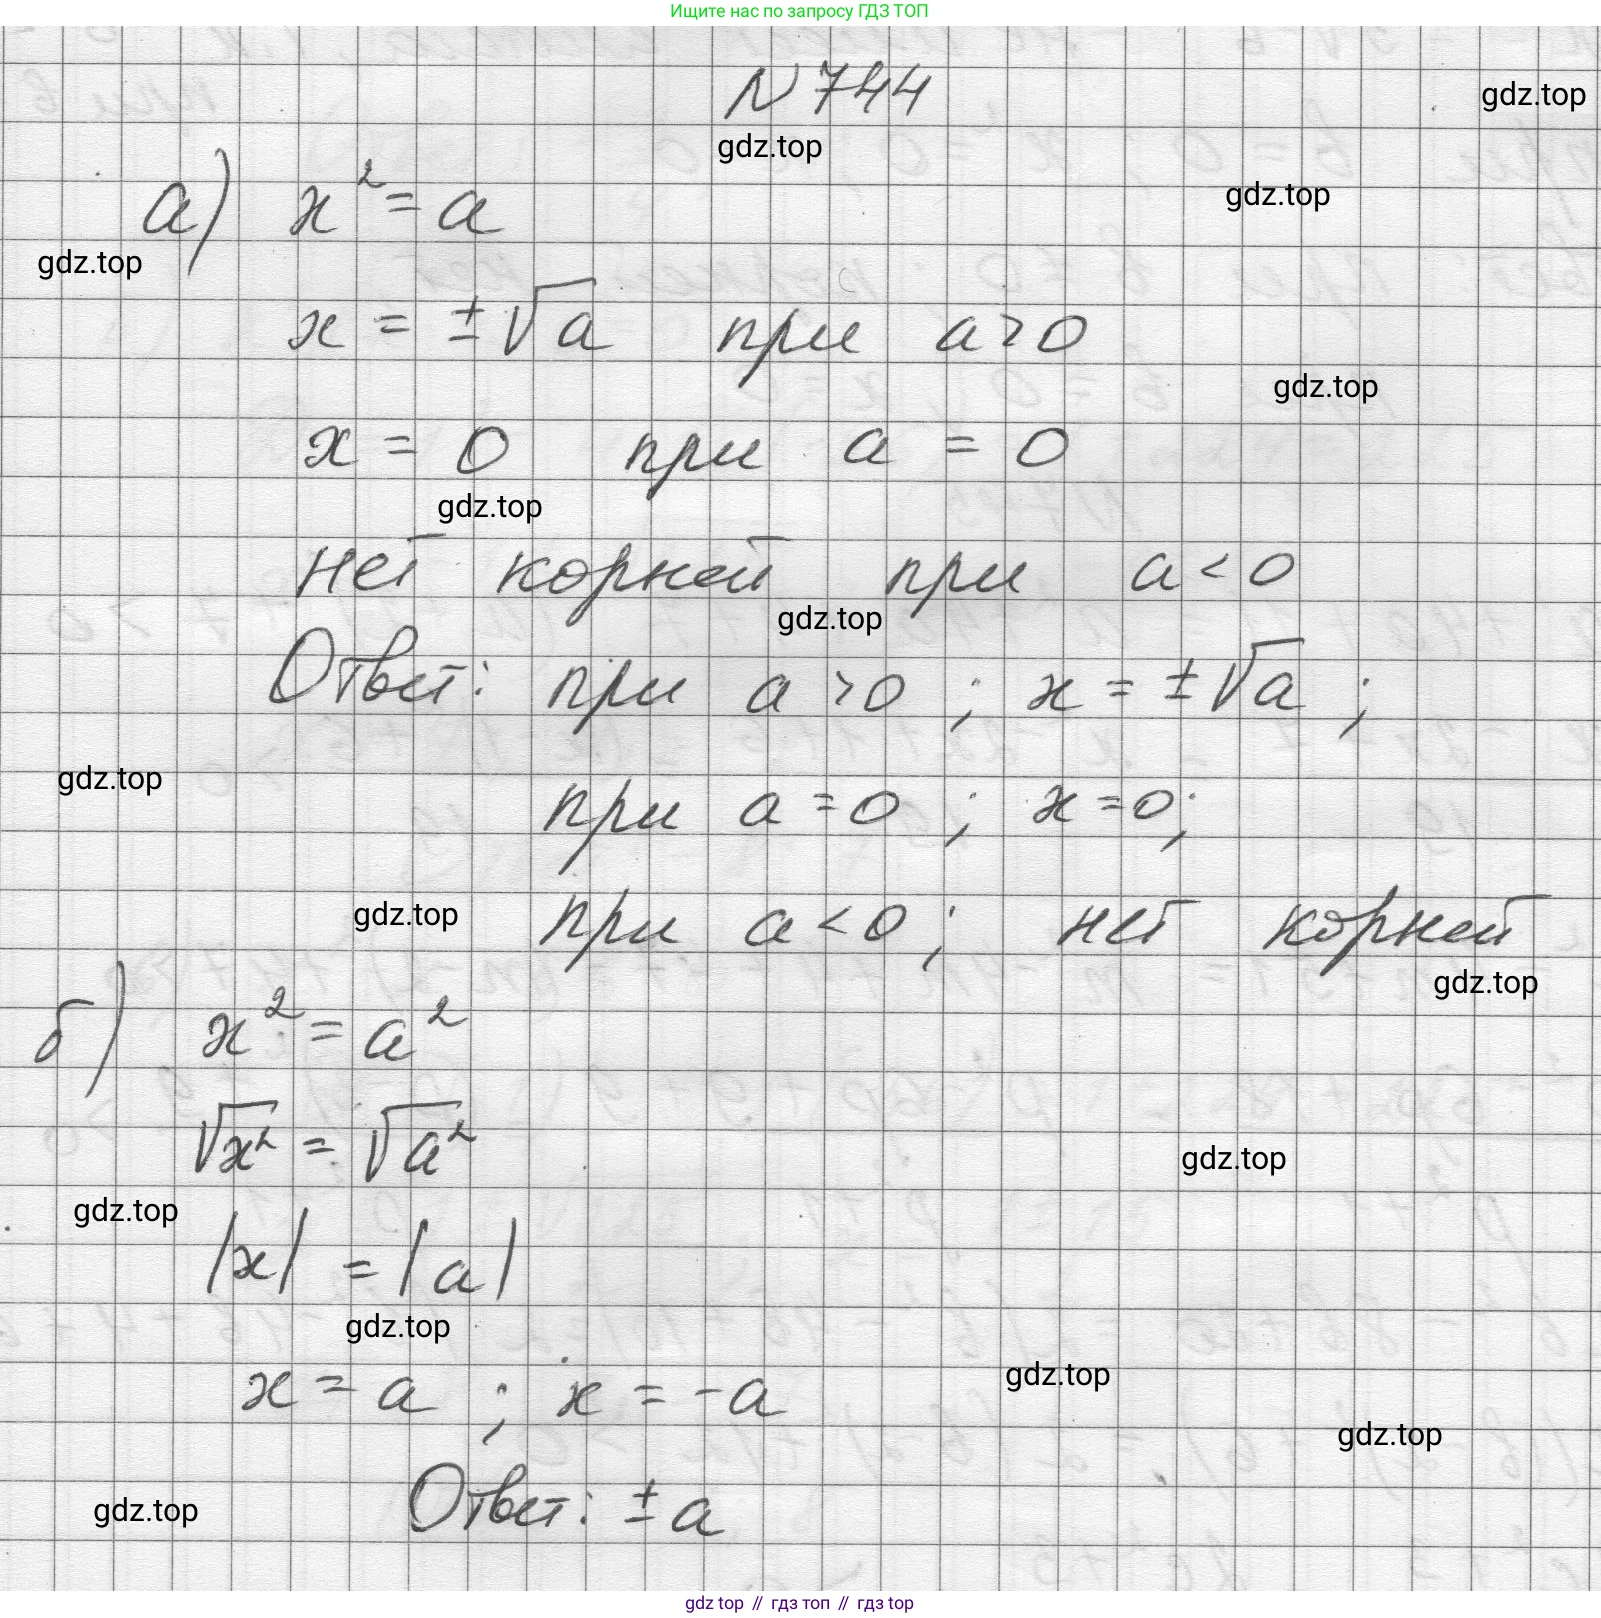 Ищите нас по запросу ГДЗ ТОП
N 744
gdz.top
gdz.top
а) x² = a
gdz.top
gdz.top
x = ±√a при a > 0
gdz.top
x = 0 при a = 0
gdz.top
нет корней при a < 0
gdz.top
Ответ: при a > 0 ; x = ±√a ;
gdz.top
при a = 0 ; x = 0;
gdz.top
при a < 0 ; нет корней
gdz.top
б) x² = a²
√x² = √a²
gdz.top
gdz.top
|x| = |a|
gdz.top
x = a ; x = -a
gdz.top
gdz.top
Ответ: ± a
gdz.top
gdz top // гдз топ // гдз top